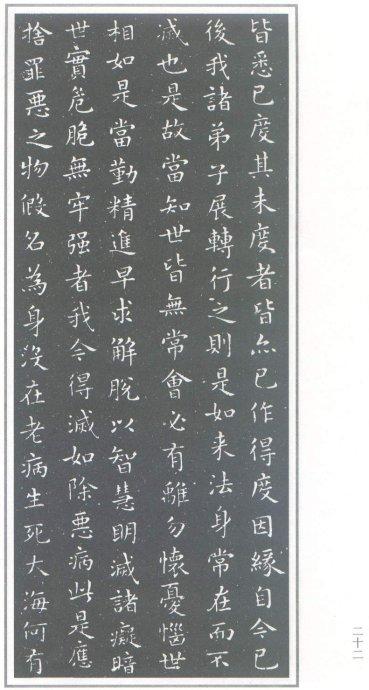 皆悉已度其未度者皆亦已作得度因緣自今已
後我諸弟子展轉行之則是如来法身常在而不
滅也是故當知世皆無常會必有離勿懷憂惱世
相如是當勤精進早求解脫以智慧明滅諸癡暗
世實危脆無牢强者我今得滅如除惡病此是應
捨罪惡之物假名為身没在老病生死大海何有
二十二